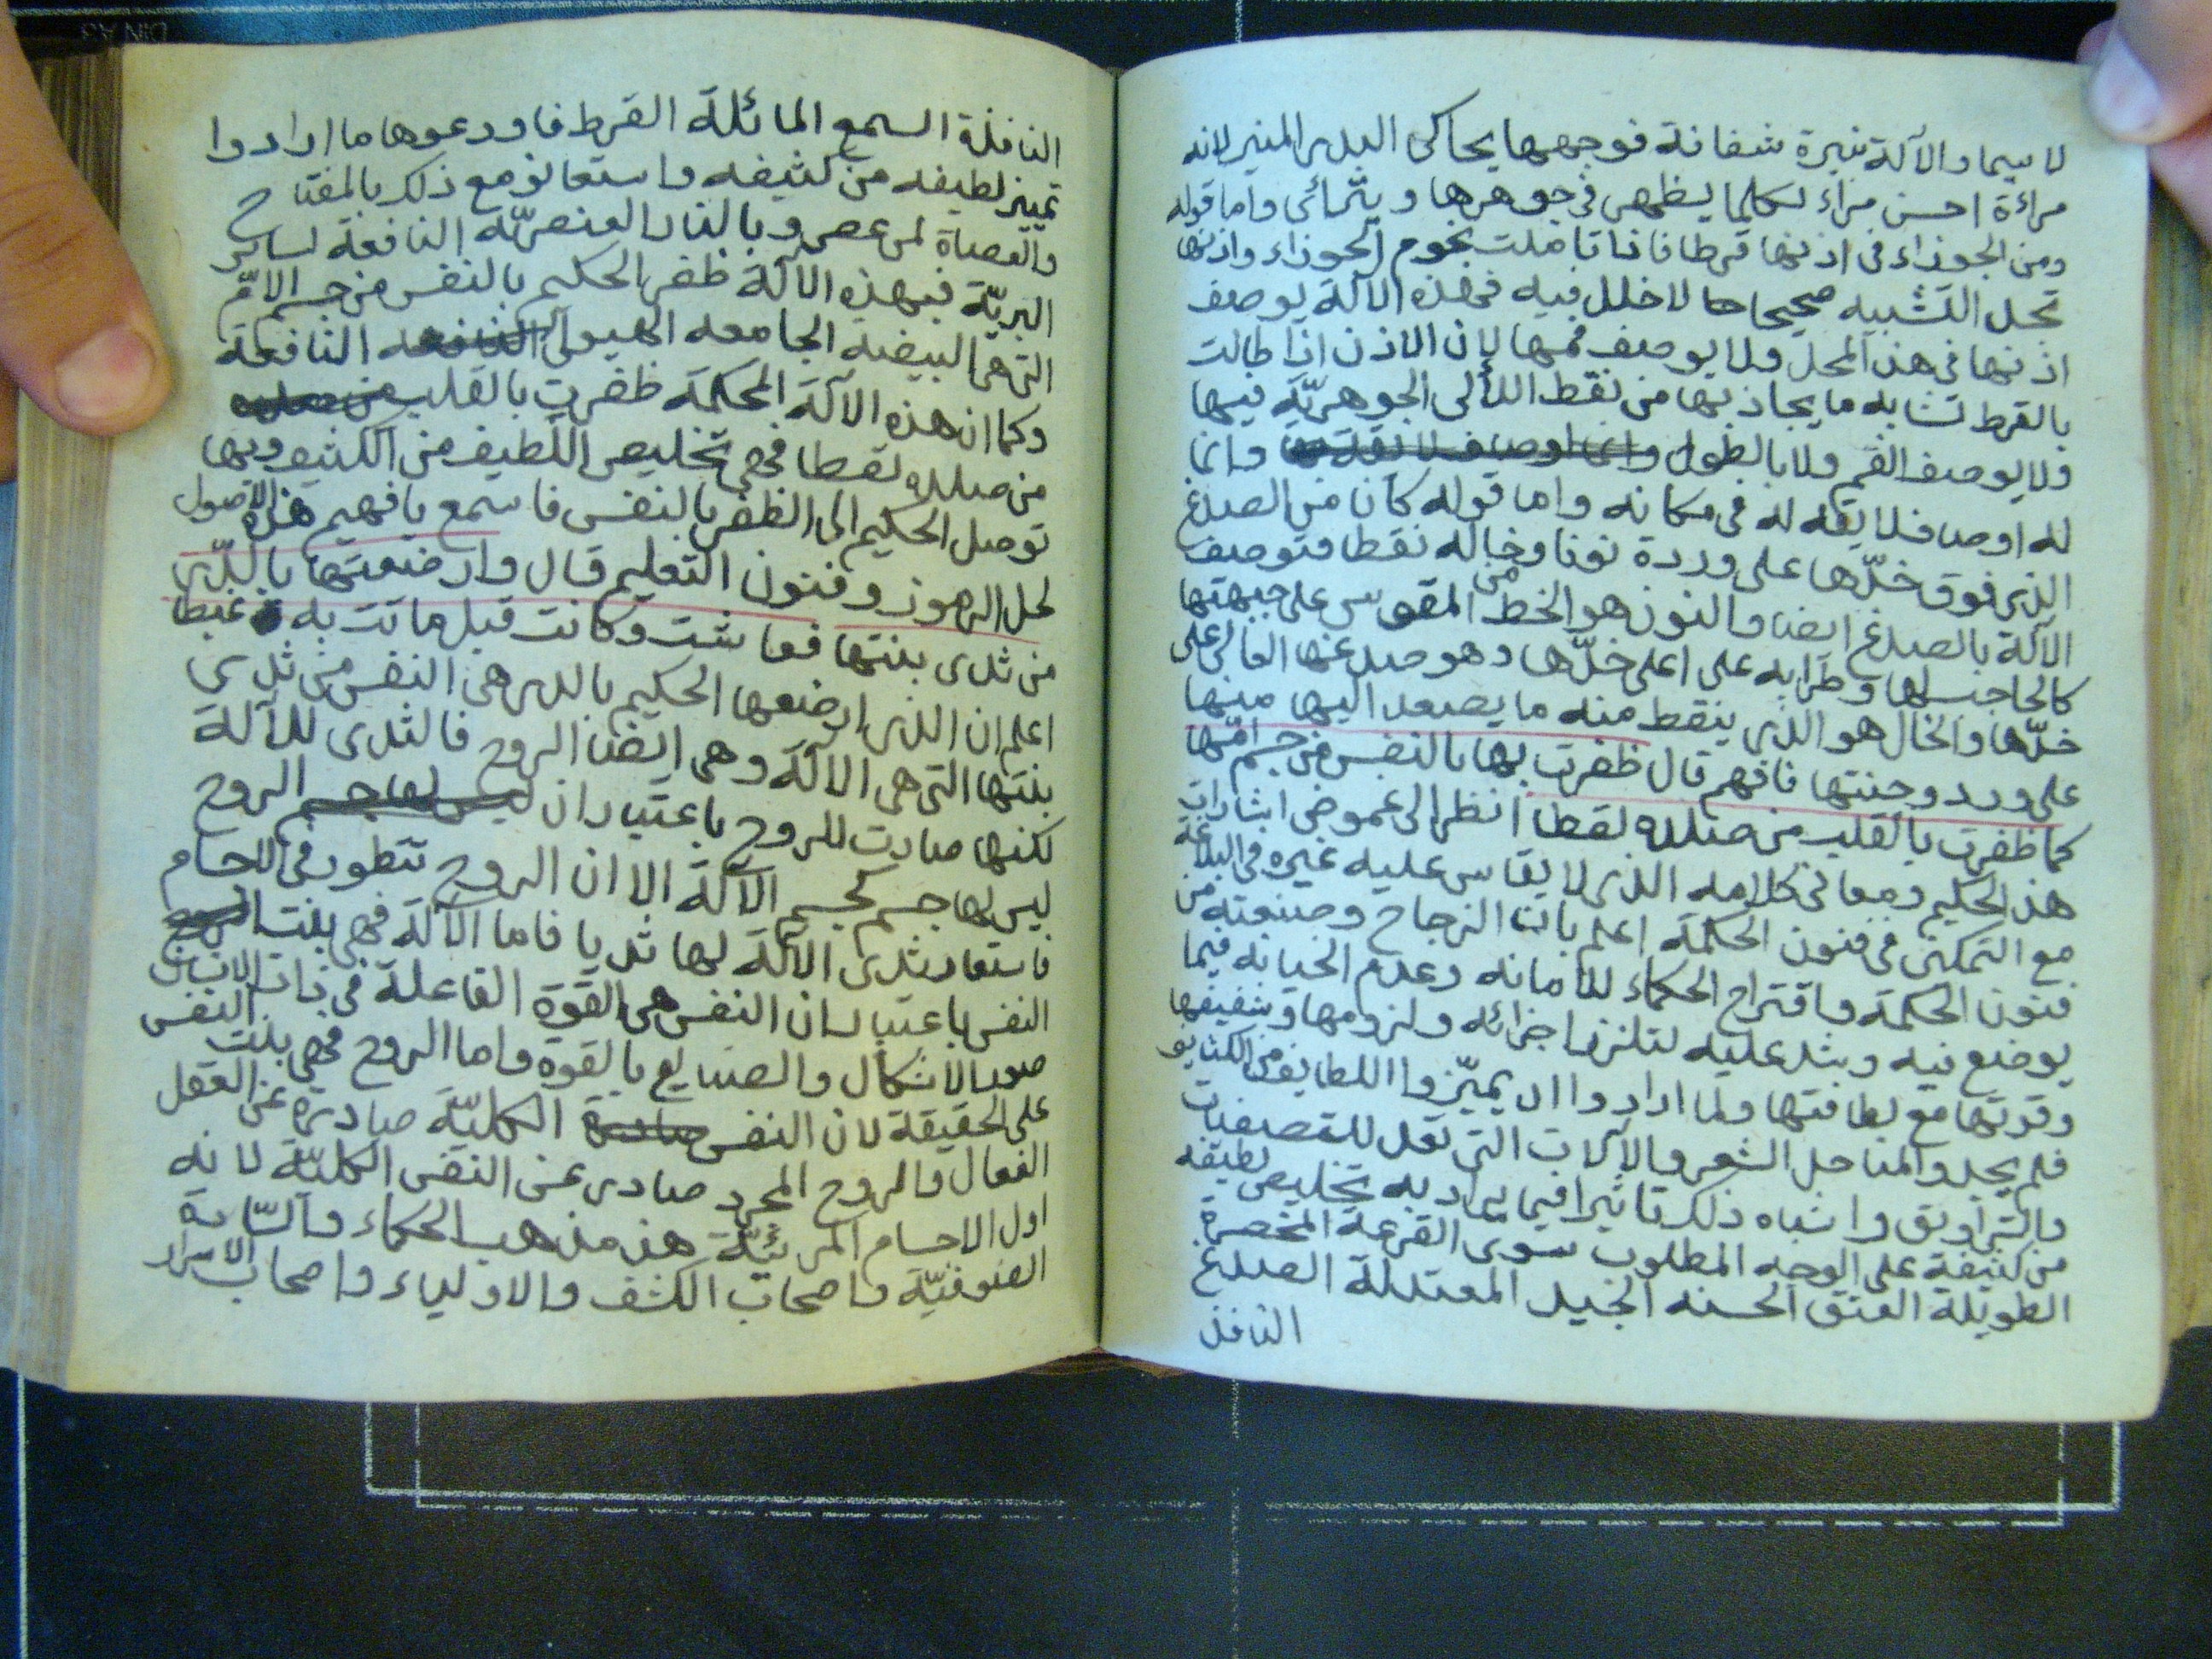 لا سيما والآلة نيرة شفافة فوجهها يحاكى البدر المنير لانه
مراءة احسن مراء لكلما يظهر فى جوهرها ويترائى واما قوله
ومن الجوزاء فى اذنها قرطا فاذا تاملت نجوم الجوزاء واذنها
تجد التشبيه صحيحا لا خلل فيه فهذه الآلة يوصف
اذنها فى هذا المحل ولا يوصف فمها لان الاذن اذا طالت
بالقرط تشابه ما يحاذيها من نقط اللألى الجوهريّة فيها
ولا يوصف الفم ولا بالطول وانما
له اوصاف لايقه له فى مكانه واما قوله كأن من الصدغ
الذى فوق خدّها على وردة نونا وخاله نقطا فتوصف
الآلة بالصدغ ايضا والنون هو الخط المقوس على جبهتها
كالحاجب لها وطرا به على اعلى خدّها وهو صدغها العالى على
خدّها والخال هو الذى ينقط منه ما يصعد اليها منها
على ورد وجنتها فافهم قال ظفرت بها بالنفس من جسم امّها
كما ظفرت بالقلب من صلده لقطا انظر الى غموض اشارات
هذا الحكيم ومعانى كلامه الذى لا يقاس عليه غيره فى البلاغة
مع التمكن فى فنون الحكمة اعلم بان الزجاج وصنعته من
فنون الحكمة واقتراح الحكماء للامانه وعدم الخيانه فيما
يوضع فيه ويشد عليه لتلزز اجزائه ولزومها وشفيفها
وقوتها مع لطافتها ولما ارادوا ان يميّزوا اللطايف من الكثايف
فلم يجدوا المناخل الشعر والآلات التى تعد للتصفيات
والتراويق واشباه ذلك تاثيرا فيما يراد به تخليص لطيفه
من كثيفة على الوجه المطلوب سوى القرعة المختصرة
الطويلة العنق الحسنه الجيد المعتدلة الصدغ
النافذ
النافذة السمع المائلة القرط فاودعوها ما ارادوا
تمييز لطيفه من كثيفه واستعانو مع ذلك بالمفتاح
والعصاة لمن عصى وبالنار العنصريّه النافعة لساير
البريّة فبهذه الآلة ظفر الحكيم بالنفس من جسم الامّ
التى هى البيضة الجامعه الهيولى النافعة
وكما ان هذه الآلة المحكمة ظفرت بالقلب
من صلده لقطا فهى تخليص اللطيف من الكثيف وبها
توصل الحكيم الى الظفر بالنفس فاسمع يا فهيم هذه الاصول
لحل الرموز وفنون التعليم قال وارضعتها بالدّر
من ثدى بنتها فعاشت وكانت قبل ماتت به غبطا
اعلم ان الذى ارضعها الحكيم بالدر هى النفس من ثدى
بنتها التى هى الآلة وهى ايضا الروح فالثدى للآلة
لكنها صارت للروح باعتبار ان الروح
ليس لها جسم كجسم الآلة الا ان الروح تتطور فى الاجسام
فاستعار ثدى الآلة لها ثديا فاما الآلة فهى بنت
النفس باعتبار ان النفس هى القوة الفاعلة فى ذات الانسان
صور الاشكال والصنايع بالقوه واما الروح فهى بنت النفس
على الحقيقة لان النفس الكليّة صادرة عن العقل
الفعال والروح المجرد صادر عن النفس الكليّة لانه
اول الاجسام المرئيّة هذا مذهب الحكماء والسّادة
الصوفيّة واصحاب الكشف والاولياء واصحاب الاسرار